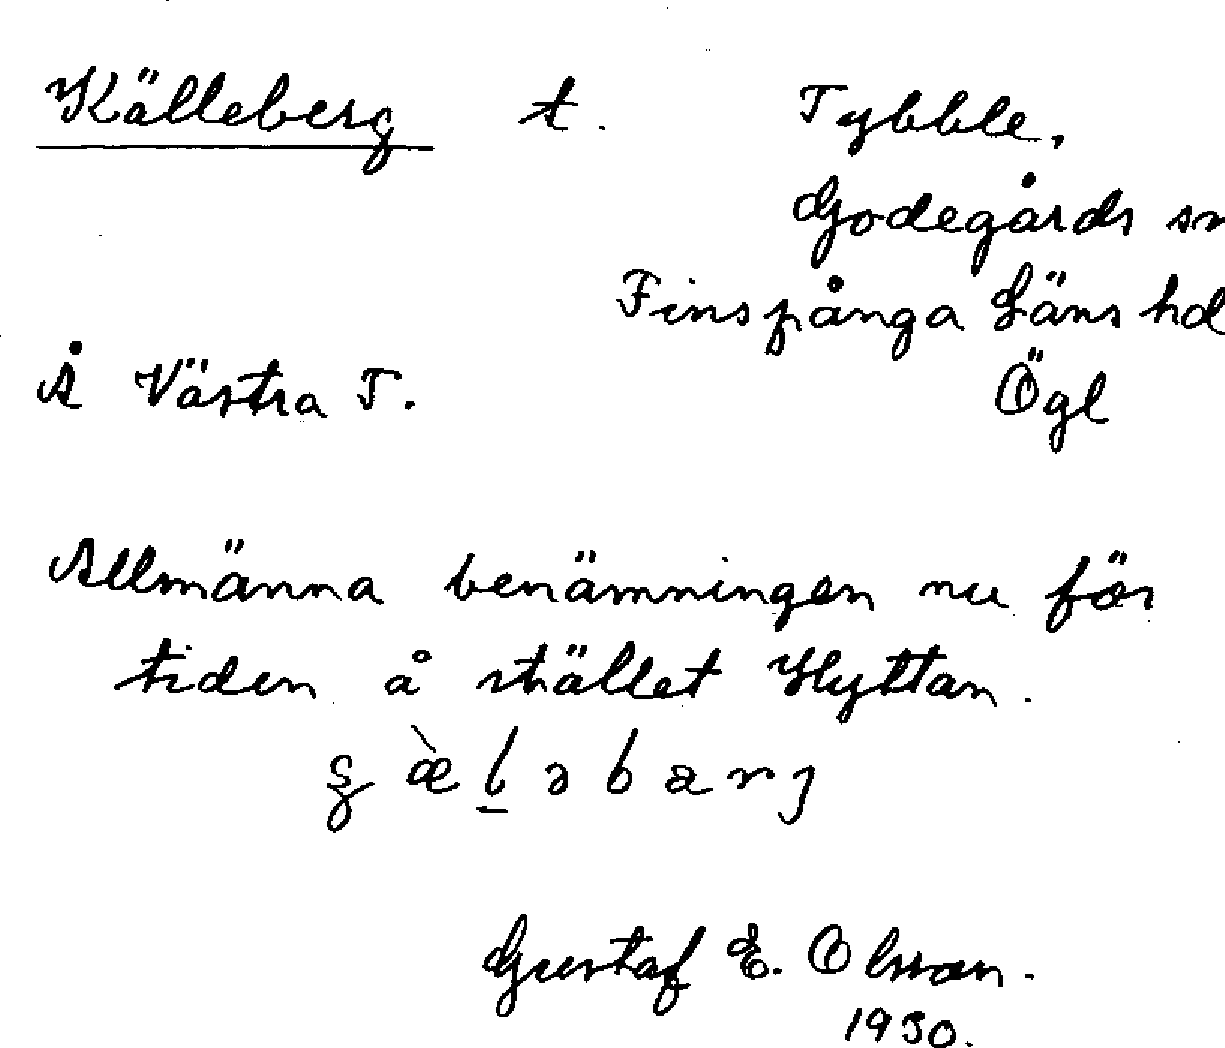 Källeberg t. Tybble,
Godegårds sn
Finspånga Läns hd
Å Västra T. Ögl
Allmänna benämningen nu för
tiden å stället Hyttan.
Gustaf E. Olsson.
1930.